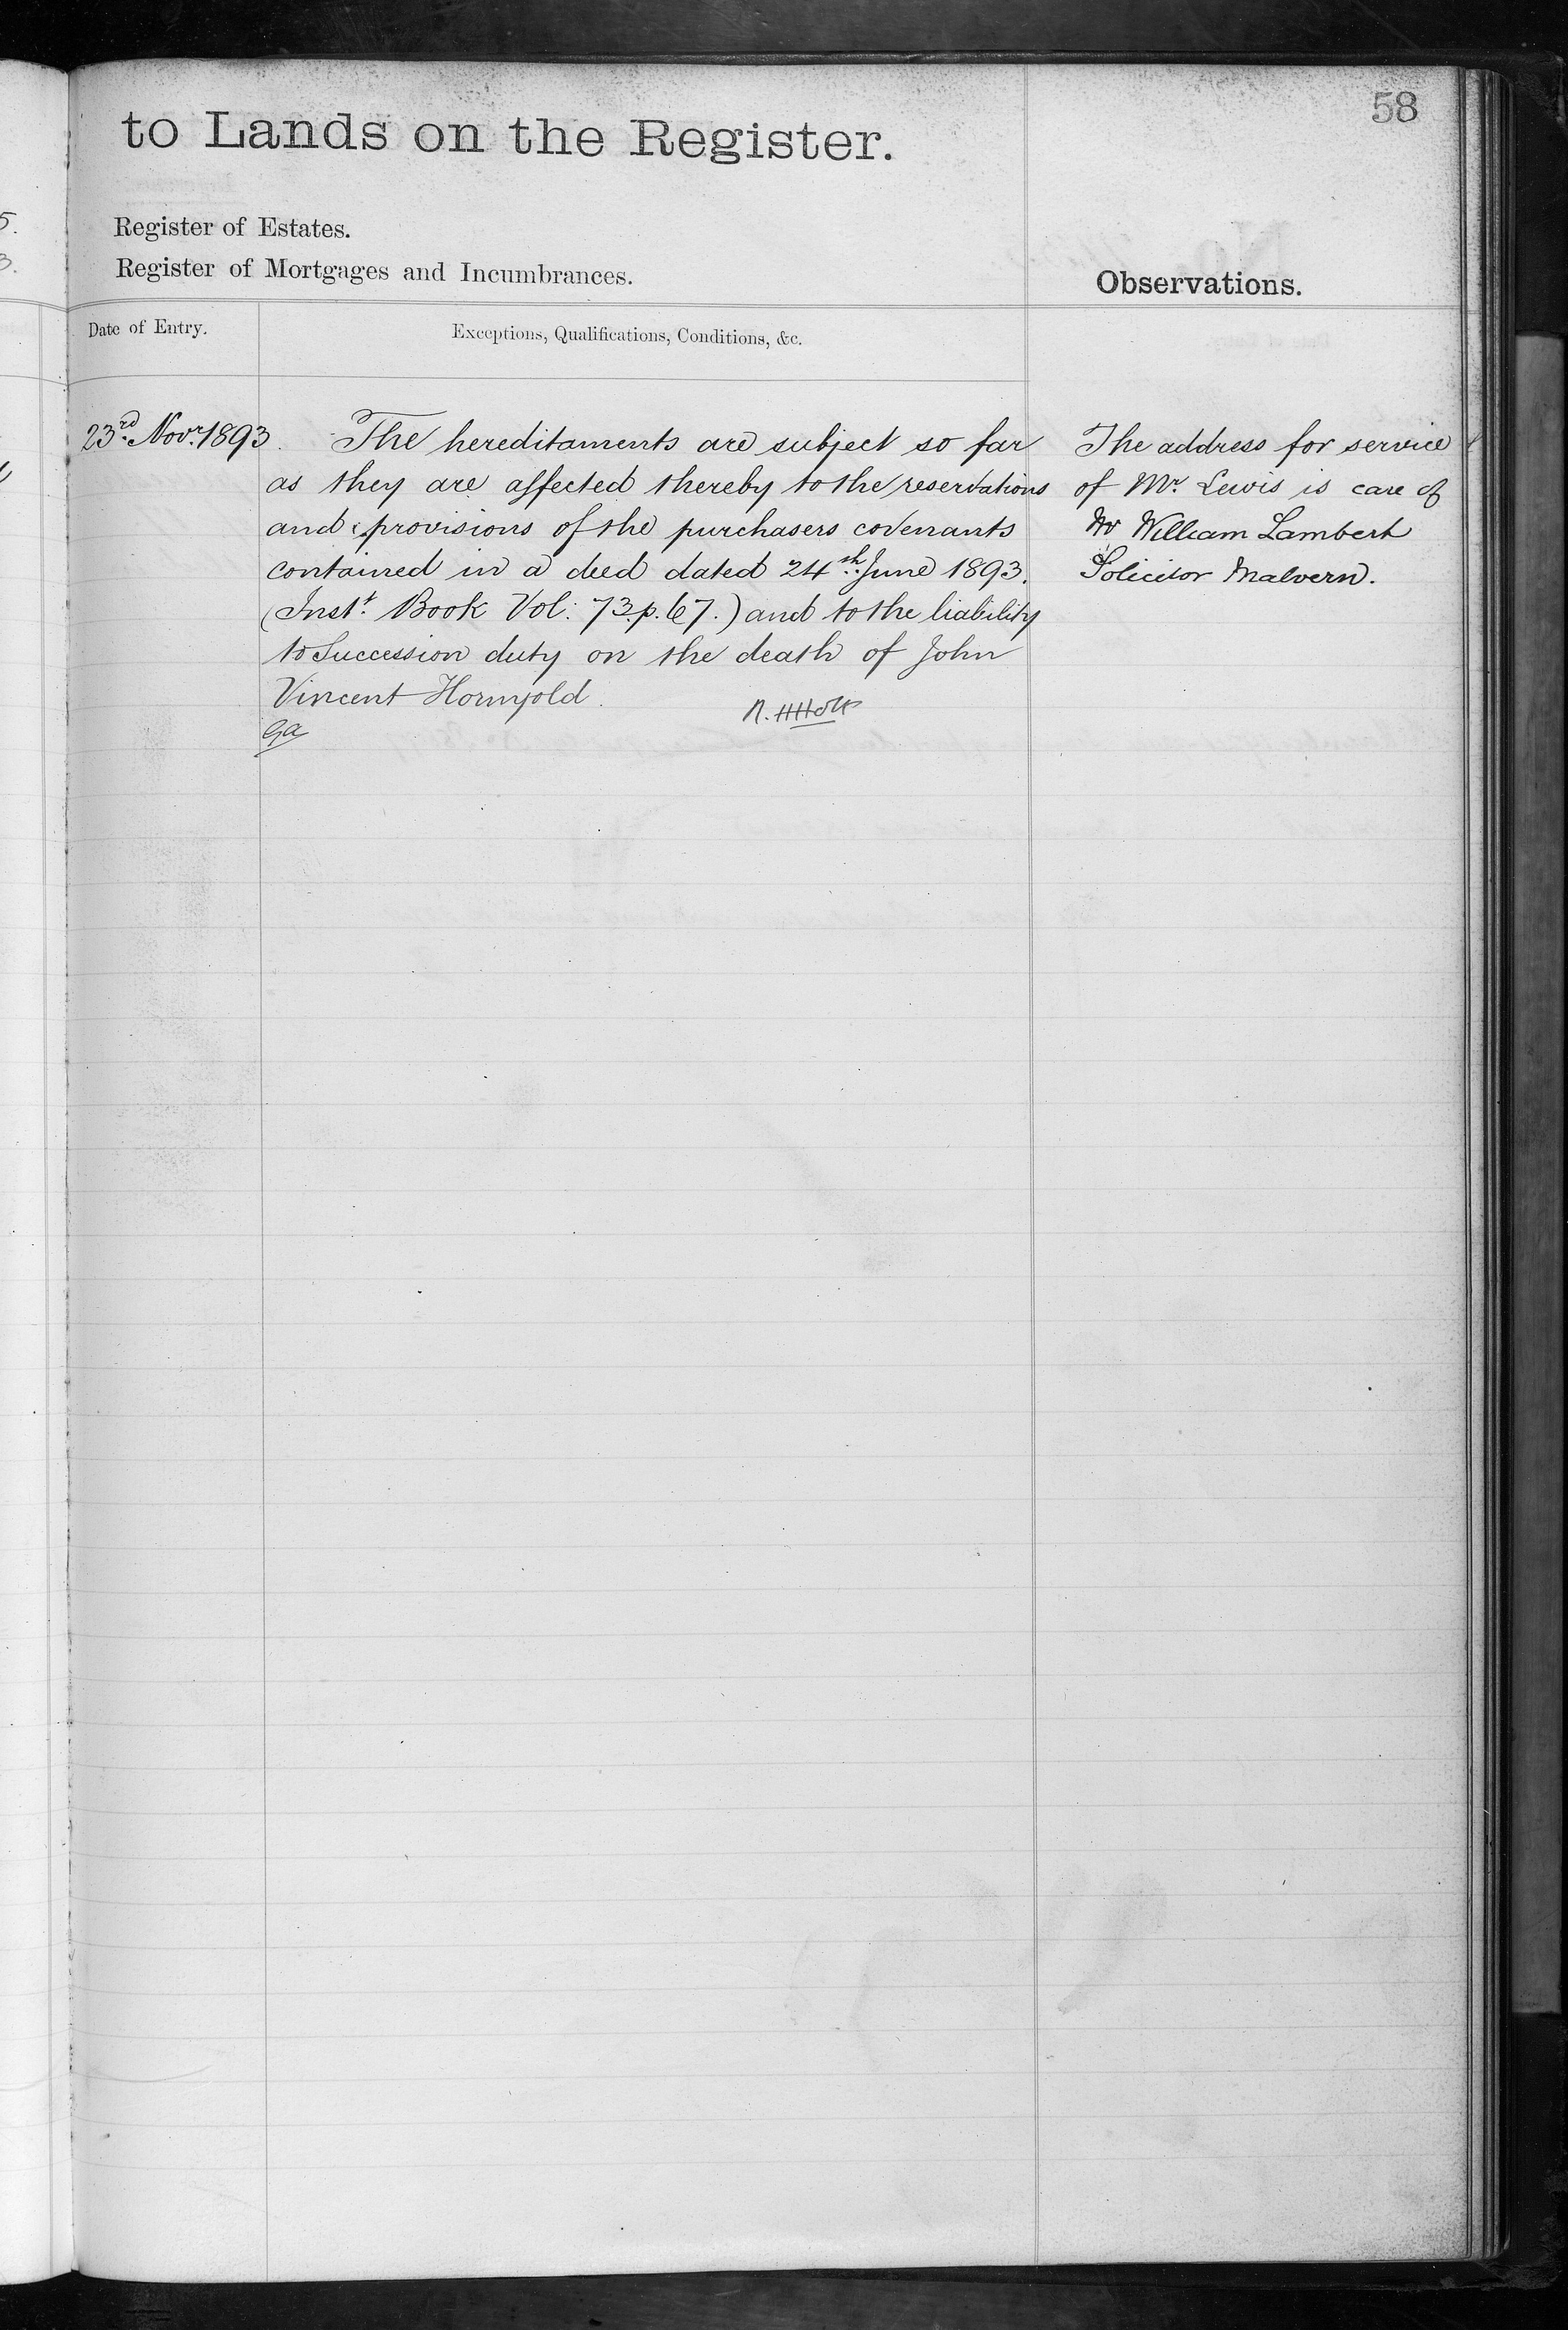 58
to Lands on the Register.
Register of Estates.
Register of Mortgages and Incumbrances.
Observations.
Date of Entry.
Exceptions, Qualifications, Conditions, &c.
23rd Novr. 1893
The hereditaments are subject so far
as they are affected thereby to the reservations
and provisions of the purchasers covenants
contained in a deed dated 24th June 1893.
(Instt. Book Vol: 73. p. 67.) and to the liability
to Succession duty on the death of John
Vincent Hornyold.
The address for service
of Mr. Lewis is care of
Mr William Lambert
Solicitor Malvern.